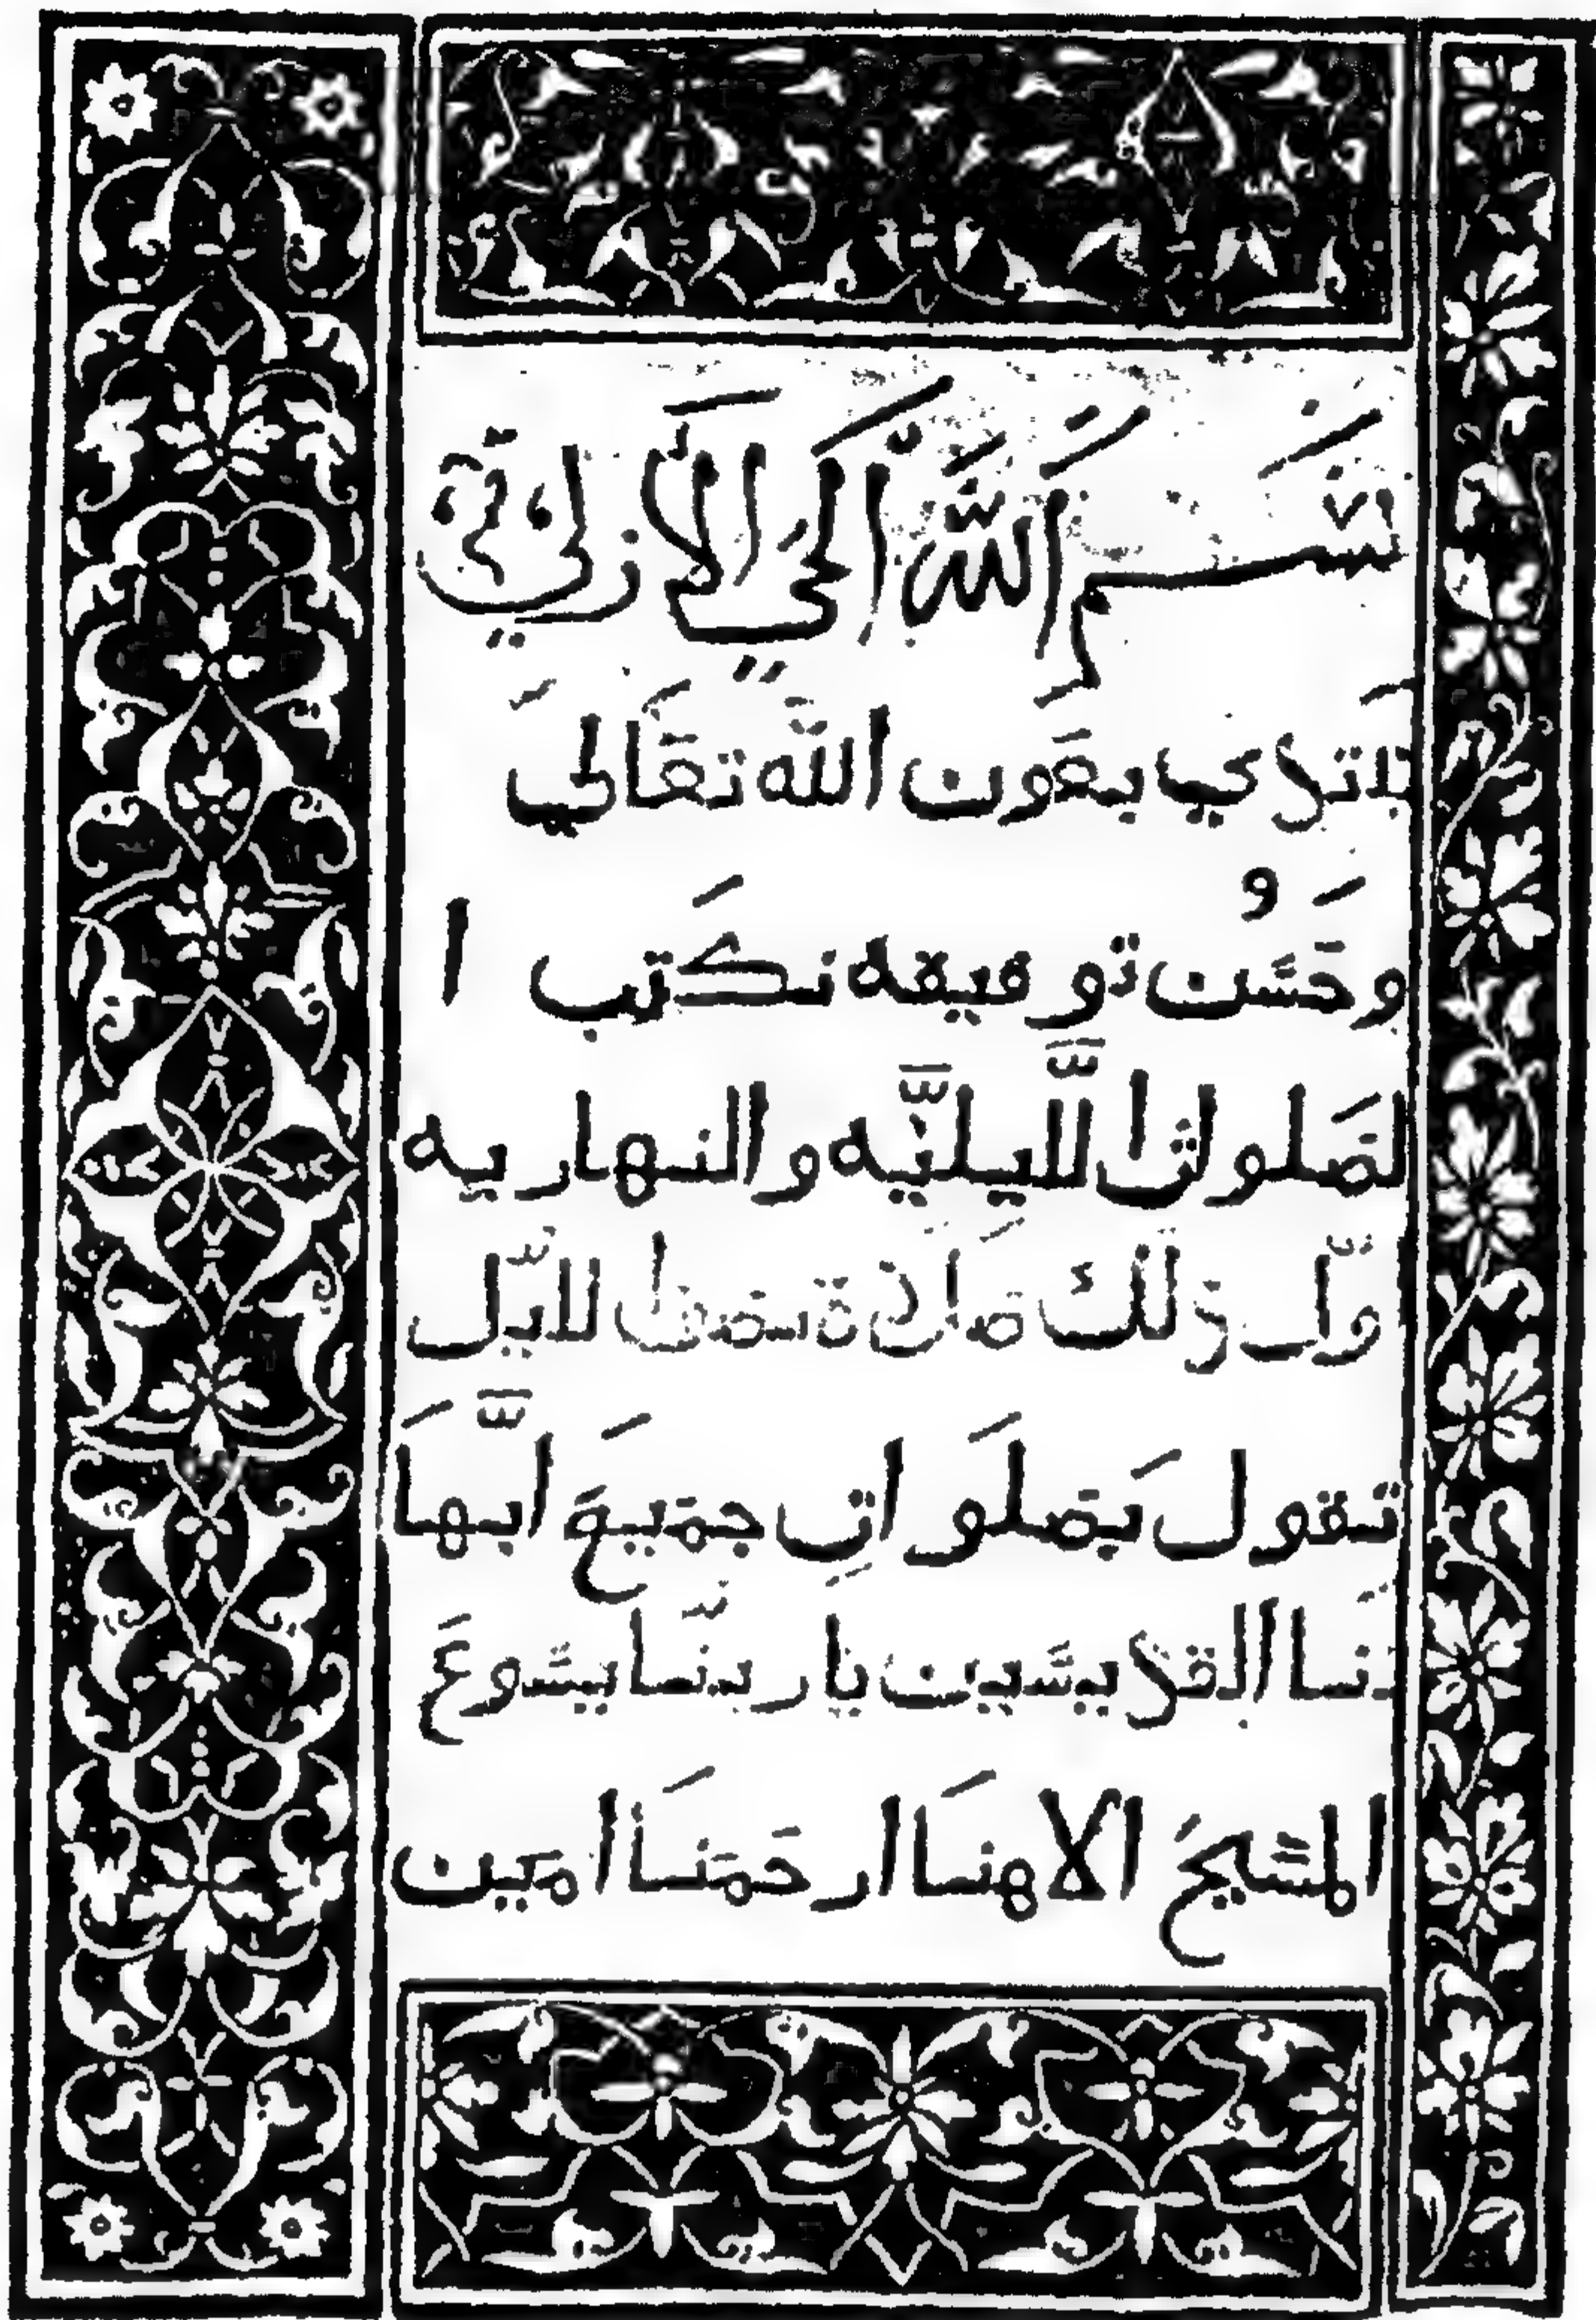 بسم الله الحي الازلي
بعون الله تعالي
وحسن توفيقه نكتب ا
لصلوات اللّيليّه والنهاريه
اوّل ذلك صلاة نصف الليّل
تقول بصلوات جميع ابّها
تنا القديسين يا ربنّا يسوع
المسيح الاهنا ارحمنا امين